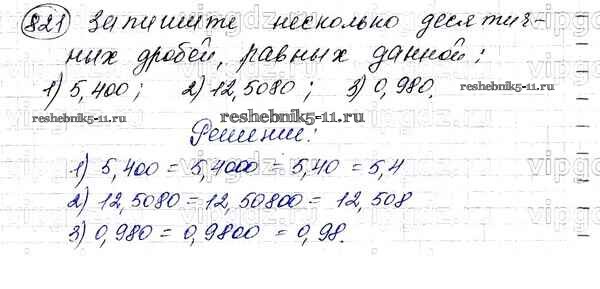 821 Запишите несколько десятич-
ных дробей, равных данной:
1) 5,400; 2) 12,5080; 3) 0,980.
reshebnik5-11.ru reshebnik5-11.ru
Решение:
1) 5,400 = 5,4000 = 5,40 = 5,4
2) 12,5080 = 12,50800 = 12,508
3) 0,980 = 0,9800 = 0,98.